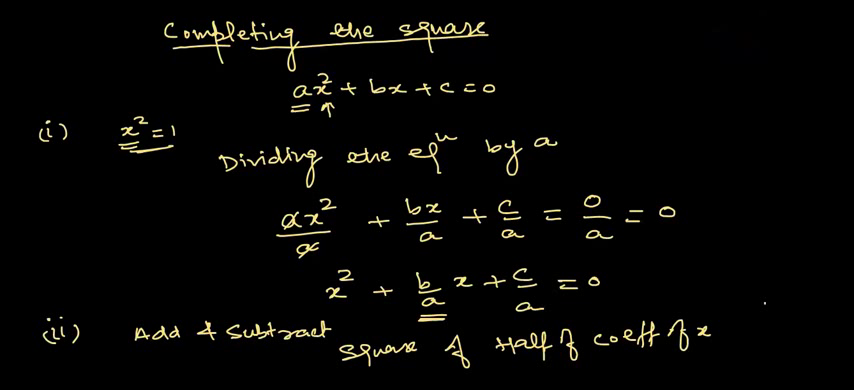 Completing the square
ax² + bx + c = 0
(i) x² = 1
Dividing the eqⁿ by a
ax²/a + bx/a + c/a = 0/a = 0
x² + b/a x + c/a = 0
(ii) Add & Subtract square of Half of coeff of x